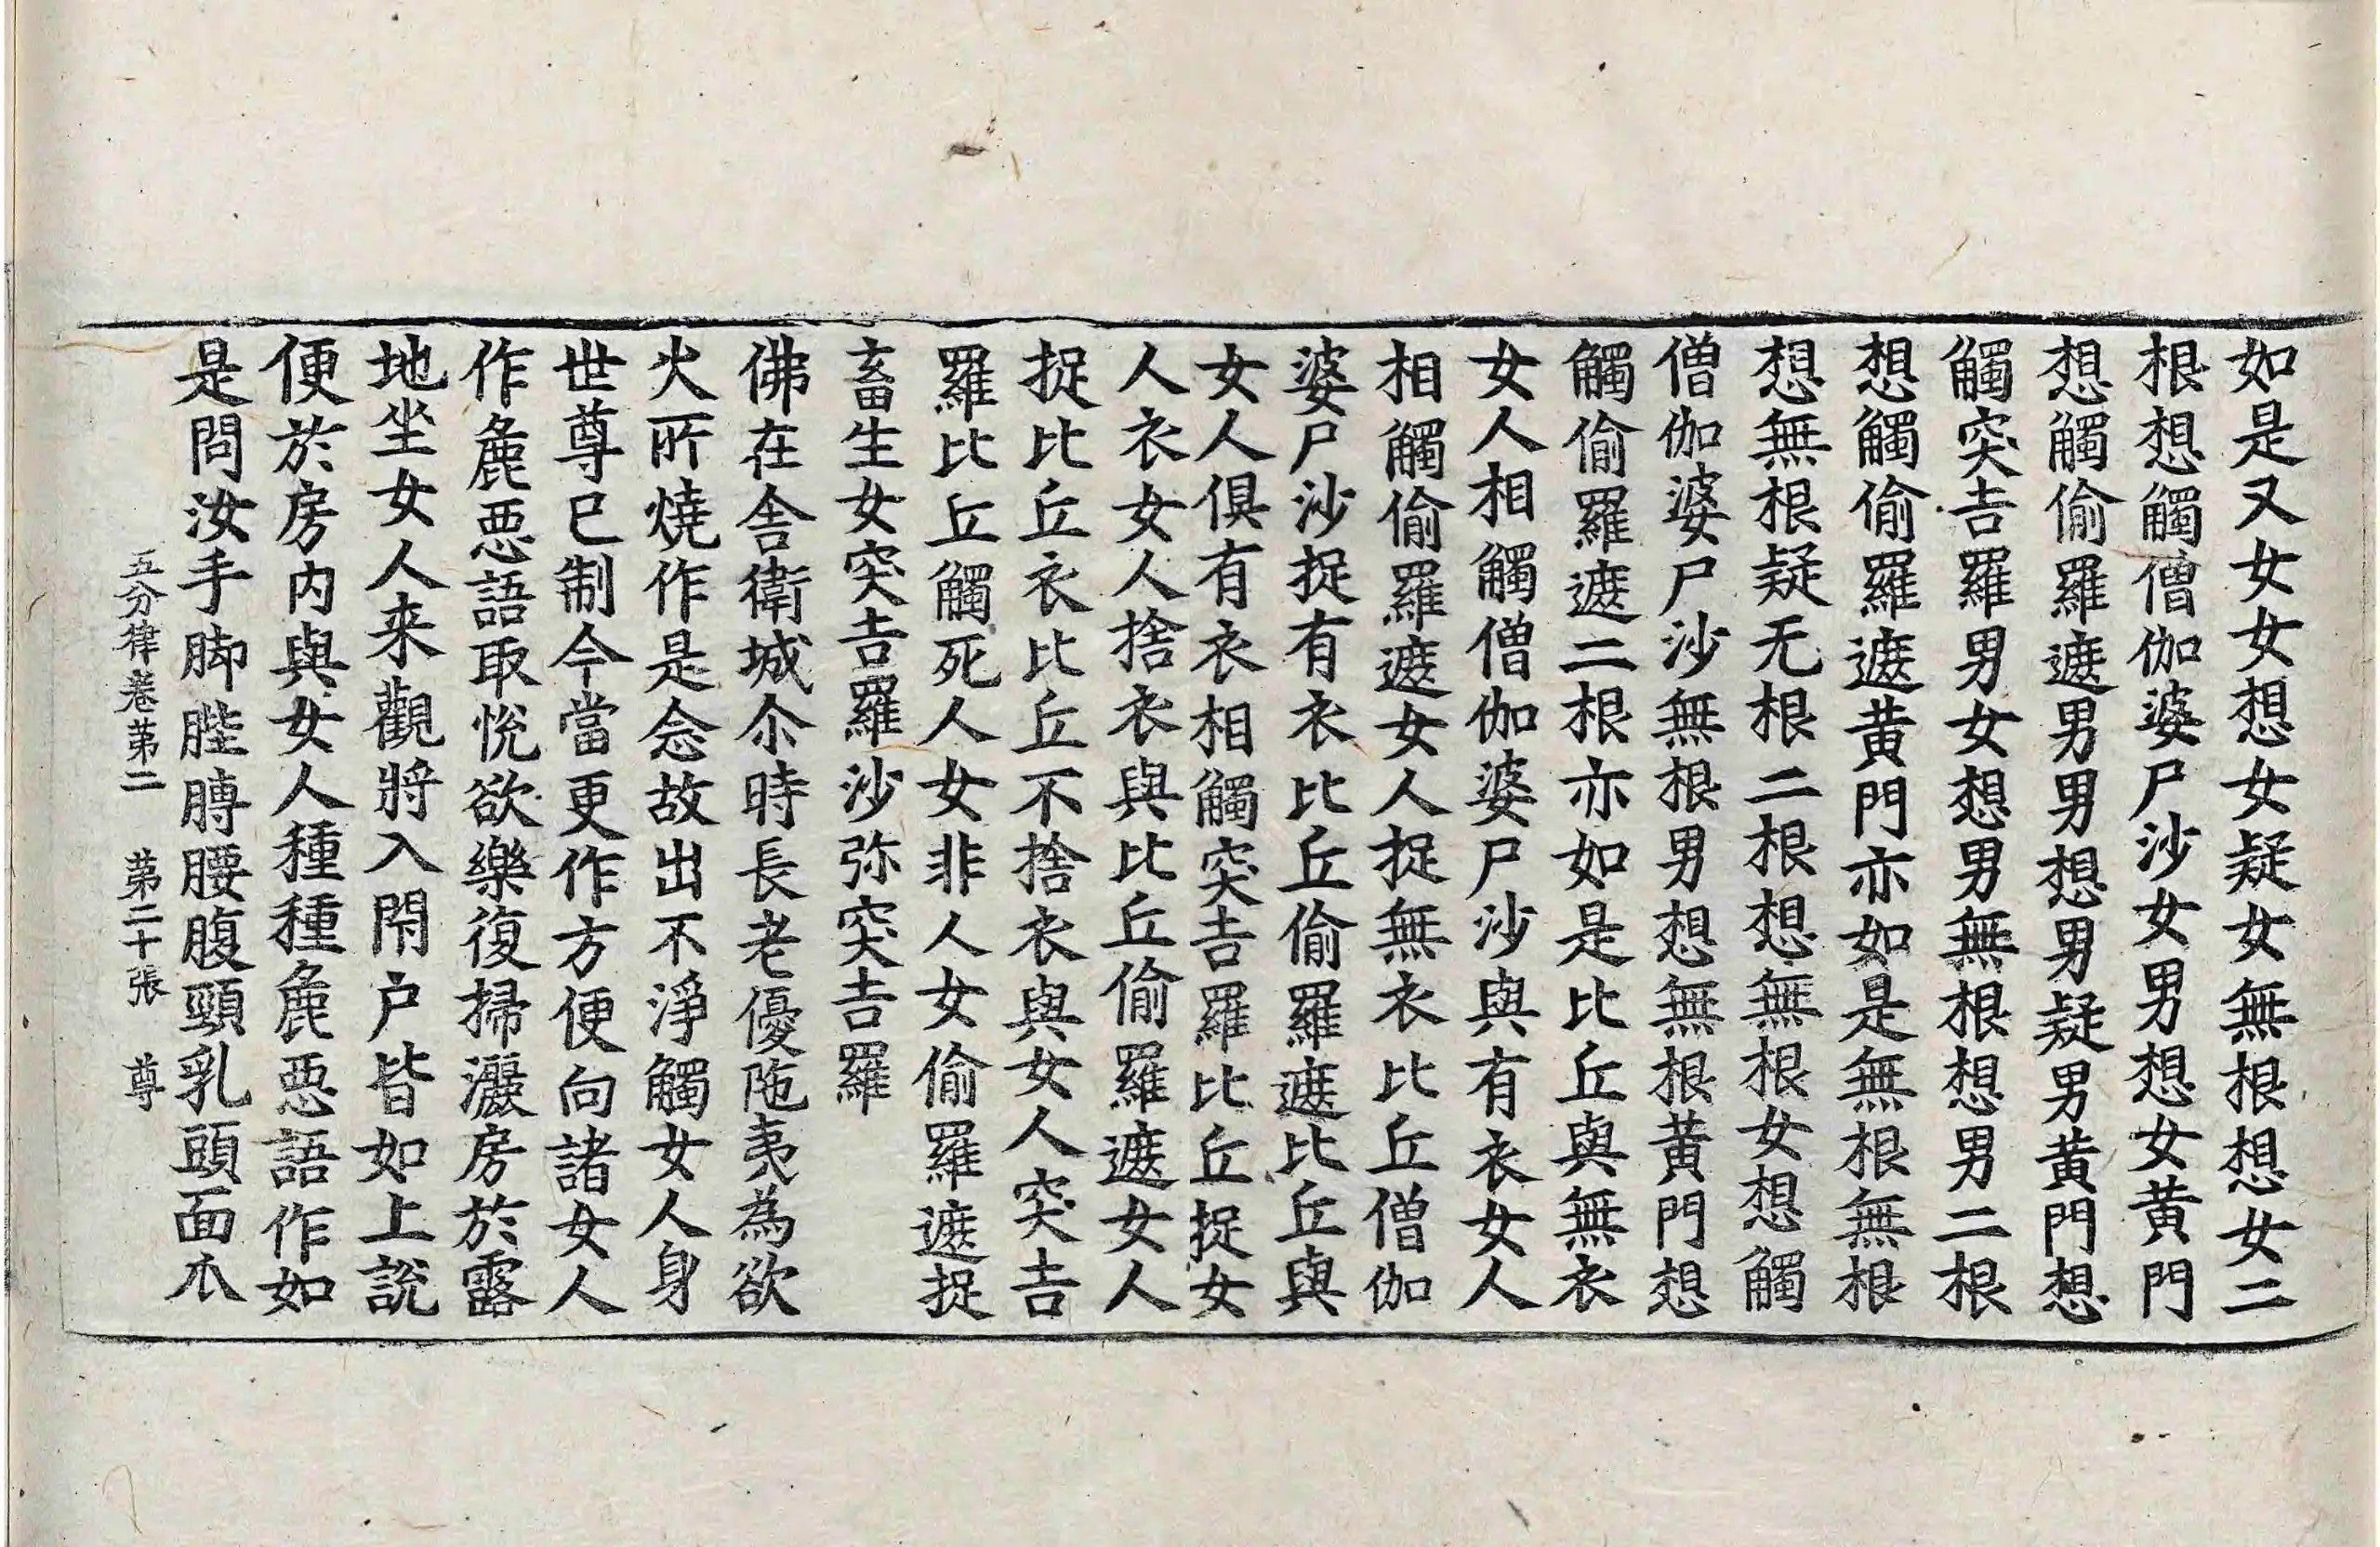 如是又女女想女疑女無根想女二
根想觸僧伽婆尸沙女男想女黄門
想觸偷羅遮男男想男疑男黄門想
觸突吉羅男女想男無根想男二根
想觸偷羅遮黄門亦如是無根無根
想無根疑无根二根想無根女想觸
僧伽婆尸沙無根男想無根黄門想
觸偷羅遮二根亦如是比丘與無衣
女人相觸僧伽婆尸沙與有衣女人
相觸偷羅遮女人捉無衣比丘僧伽
婆尸沙捉有衣比丘偷羅遮比丘與
女人俱有衣相觸突吉羅比丘捉女
人衣女人捨衣與比丘偷羅遮女人
捉比丘衣比丘不捨衣與女人突吉
羅比丘觸死人女非人女偷羅遮捉
畜生女突吉羅沙弥突吉羅
佛在舍衛城尒時長老優陁夷為欲
火所燒作是念故出不淨觸女人身
世尊已制今當更作方便向諸女人
作麁惡語取悅欲樂復掃灑房於露
地坐女人来觀將入閇户皆如上說
便於房内與女人種種麁惡語作如
是問汝手脚䏶膞腰腹頸乳頭面爪
五分律卷苐二 苐二十張 尊